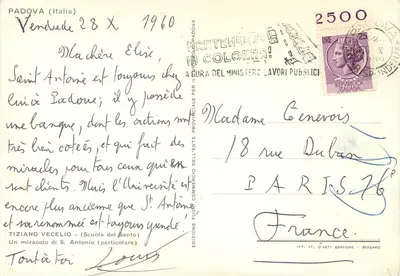 PADOVA (Italia)
Vendredi 28 X 1960
Ma chère Elise,
Saint Antoine est toujours chez
lui à Padoue; il y possède
une banque, dont les actions sont
très bien cotées, et qui fait des
miracles pour tous ceux qui en
sont clients. Mais l'Université est
encore plus ancienne que St Antoine
et sa renommée est toujours grande.
TIZIANO VECELIO - (Scuola del Santo)
Un miracolo di S. Antonio (particolare)
Tout à toi Louis
2500
IN COLOR
A CURA DEL MINISTERO LAVORI PUBBLICI
Madame Genevois
18 rue Duban
PARIS 16e
France.